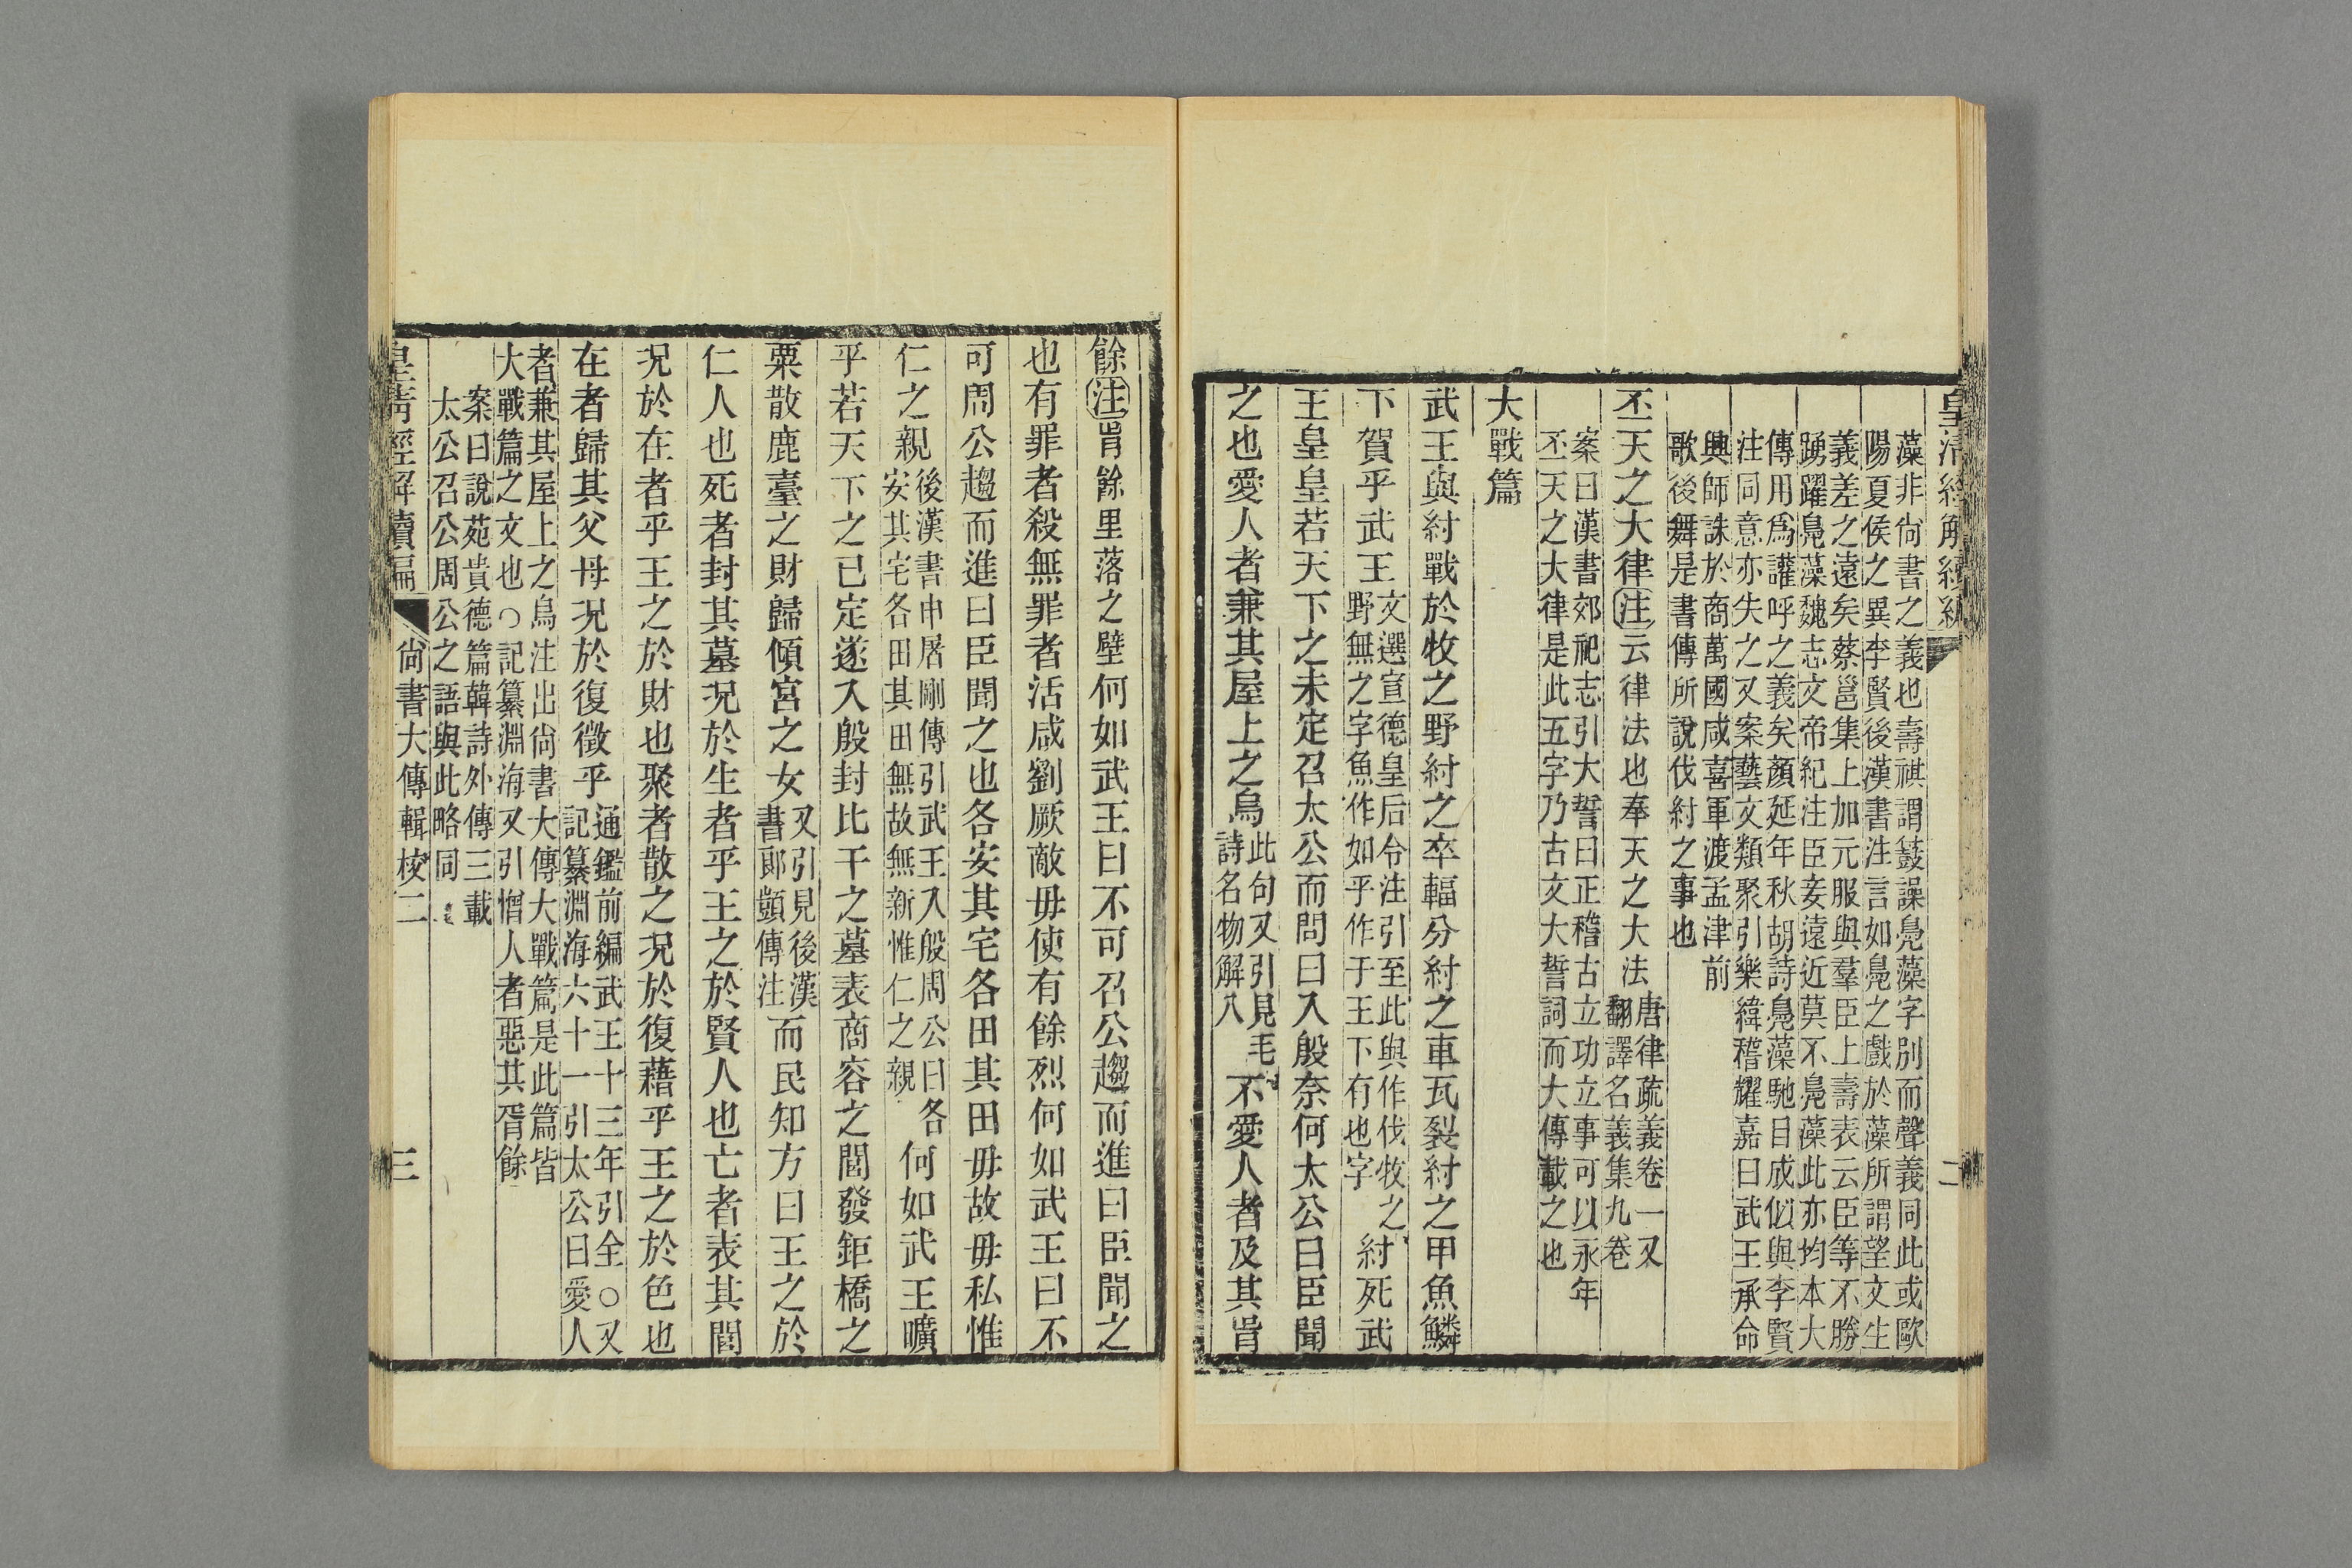 皇清經解續編
二
藻非尙書之義也壽祺謂鼓譟鳧藻字別而聲義同此或歐
陽夏侯之異李賢後漢書注言如鳧之戲於藻所謂望文生
義差之遠矣蔡邕集上加元服與羣臣上壽表云臣等不勝
踴躍鳧藻魏志文帝紀注臣妾遠近莫不鳧藻此亦均本大
傳用爲讙呼之義矣顏延年秋胡詩鳧藻馳目成似與李賢
注同意亦失之又案藝文類聚引樂緯稽耀嘉曰武王承命
興師誅於商萬國咸喜軍渡孟津前
歌後舞是書傳所說伐紂之事也
丕天之大律注云律法也奉天之大法
唐律疏義卷一又
翻譯名義集九卷
案曰漢書郊祀志引大誓曰正稽古立功立事可以永年
丕天之大律是此五字乃古文大誓詞而大傳載之也
大戰篇
武王與紂戰於牧之野紂之卒輻分紂之車瓦裂紂之甲魚鱗
下賀乎武王
文選宣德皇后令注引至此與作伐牧之
野無之字魚作如乎作于王下有也字
紂死武
王皇皇若天下之未定召太公而問曰入殷奈何太公曰臣聞
之也愛人者兼其屋上之烏
此句又引見毛
詩名物解八
不愛人者及其胥
餘注胥餘里落之壁何如武王曰不可召公趨而進曰臣聞之
也有罪者殺無罪者活咸劉厥敵毋使有餘烈何如武王曰不
可周公趨而進曰臣聞之也各安其宅各田其田毋故毋私惟
仁之親
後漢書申屠剛傳引武王入殷周公曰各
安其宅各田其田無故無新惟仁之親
何如武王曠
乎若天下之已定遂入殷封比干之墓表商容之閭發鉅橋之
粟散鹿臺之財歸傾宮之女
又引見後漢
書郞顗傳注
而民知方曰王之於
仁人也死者封其墓况於生者乎王之於賢人也亡者表其閭
况於在者乎王之於財也聚者散之况於復藉乎王之於色也
在者歸其父母况於復徵乎
通鑑前編武王十三年引全○又
記纂淵海六十一引太公曰愛人
者兼其屋上之烏注出尙書大傳大戰篇是此篇皆
大戰篇之文也○記纂淵海又引憎人者惡其胥餘
案曰說苑貴德篇韓詩外傳三載
太公召公周公之語與此略同
皇淸經解續編
尙書大傳輯校二
三